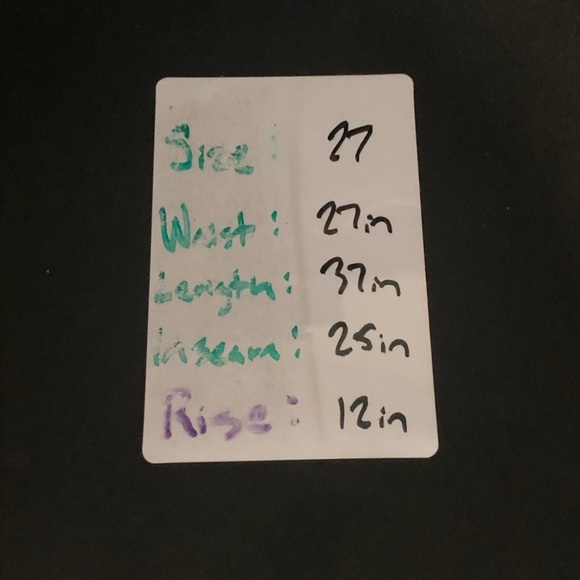 Size: 27
Waist: 27in
Length: 37in
Inseam: 25in
Rise: 12in